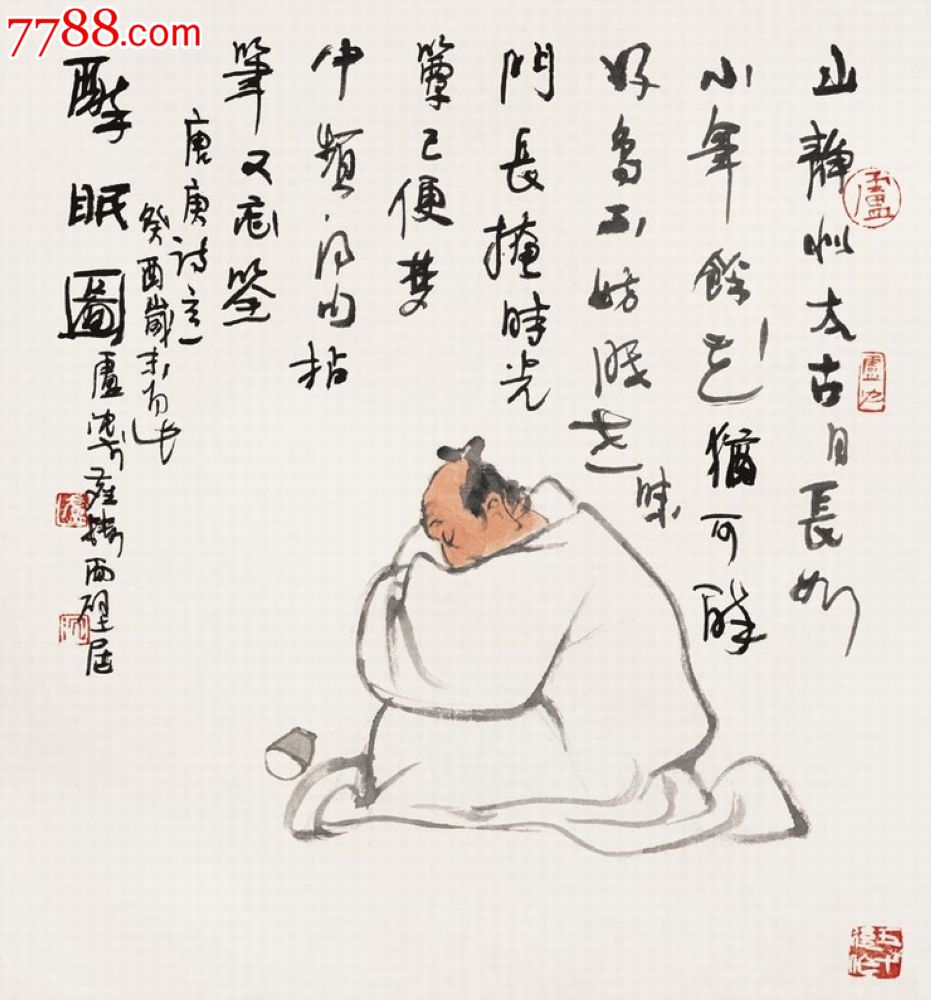 7788.com
山靜似太古日長如
小年餘花猶可醉
好鳥不妨眠世味
門長掩時光
簟已便夢
中頻得句拈
筆又忘筌
唐庚詩意
癸酉歲末
醉眠圖
盧沉
面壁居
盧
五十後作